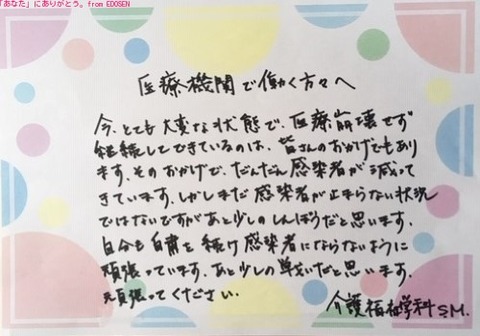 「あなた」にありがとう。from EDOSEN
医療機関で働く方々へ
今、とても大変な状態で、医療崩壊せず
継続してできているのは、皆さんのおかげでもあり
ます。そのおかげで、だんだん感染者が減って
きています。しかしまだ感染者が止まらない状況
ではないですがあと少しのしんぼうだと思います。
自分も自粛を続け感染者にならないように
頑張っています。あと少しの辛抱だと思います。
頑張ってください。
介護福祉学科 S.M.